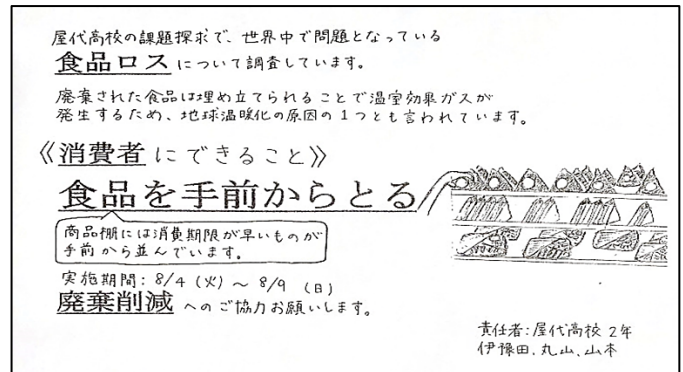 屋代高校の課題探求で、世界中で問題となっている
食品ロスについて調査しています。
廃棄された食品は埋め立てられることで温室効果ガスが
発生するため、地球温暖化の原因の1つとも言われています。
《消費者にできること》
食品を手前からとる
商品棚には消費期限が早いものが
手前から並んでいます。
実施期間:8/4(火)~8/9(日)
廃棄削減へのご協力お願いします。
責任者:屋代高校2年
伊豫田、丸山、山本